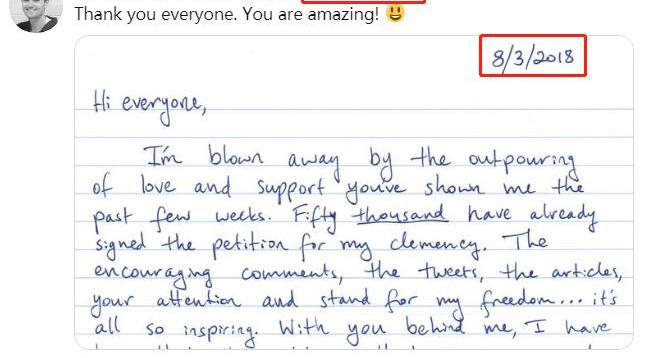 Thank you everyone. You are amazing! 😃
8/3/2018
Hi everyone,
I'm blown away by the outpouring
of love and support you've shown me the
past few weeks. Fifty thousand have already
signed the petition for my clemency. The
encouraging comments, the tweets, the articles,
your attention and stand for my freedom... it's
all so inspiring. With you behind me, I have